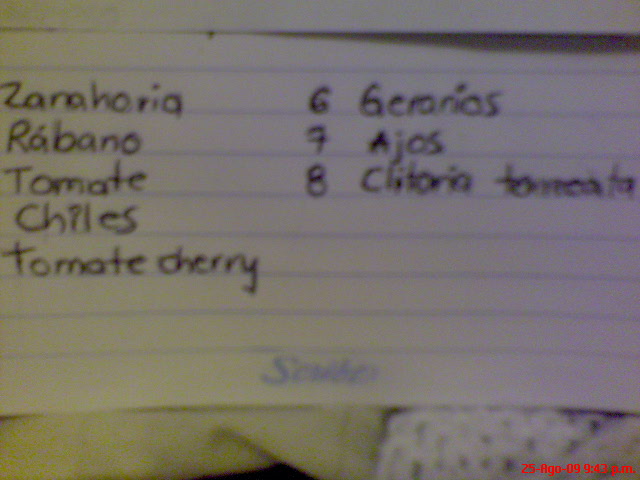 Zanahoria
Rábano
Tomate
Chiles
Tomate cherry
6 Geranios
7 Ajos
8 Clitoria
Scribe
25-Ago-09 9:42 p.m.